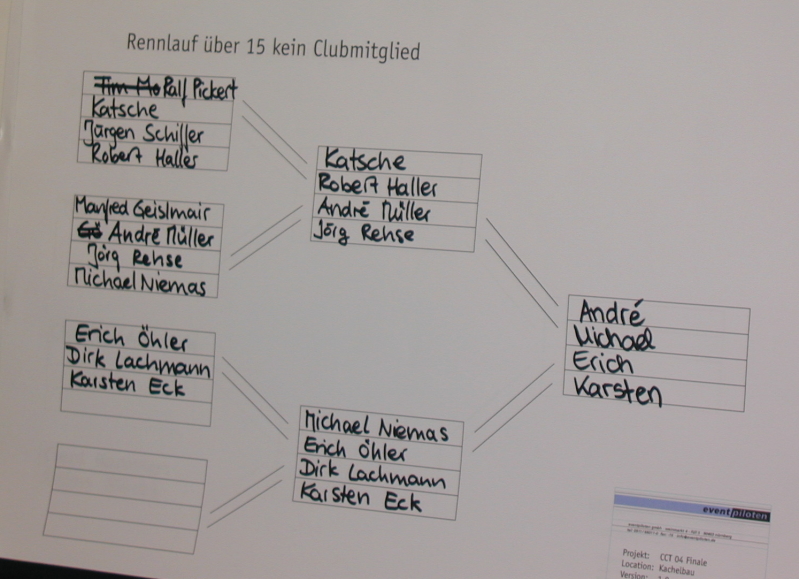 Rennlauf über 15 kein Clubmitglied
Ralf Pickert
Katsche
Jürgen Schiller
Robert Haller
Manfred Geislmair
André Müller
Jörg Rehse
Michael Niemas
Erich Öhler
Dirk Lachmann
Karsten Eck
Katsche
Robert Haller
André Müller
Jörg Rehse
Michael Niemas
Erich Öhler
Dirk Lachmann
Karsten Eck
André
Michael
Erich
Karsten
eventpiloten
Projekt: CCT 04 Finale
Location: Kachelbau
Version: